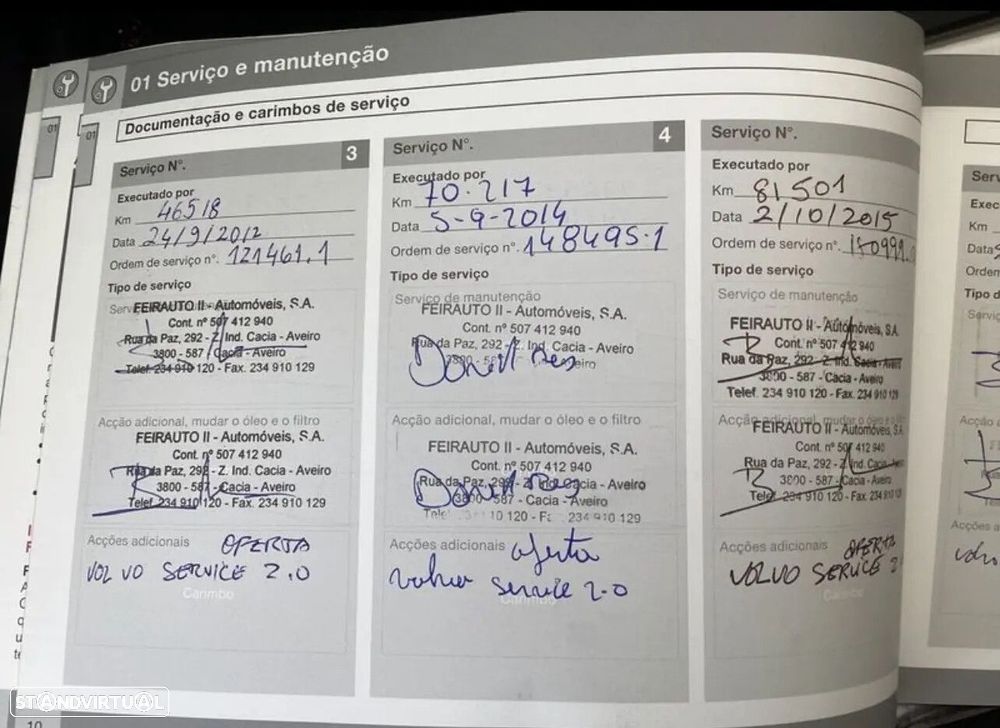 01 Serviço e manutenção
Documentação e carimbos de serviço
01
01
Serviço N°.
3
Executado por
Km 46518
Data 24/9/2012
Ordem de serviço n°. 121461.1
Tipo de serviço
FEIRAUTO II - Automóveis, S.A.
Cont. nº 507 412 940
Rua da Paz, 292 - Z. Ind. Cacia - Aveiro
3800 - 587 - Cacia - Aveiro
Telef. 234 910 120 - Fax. 234 910 129
Acção adicional, mudar o óleo e o filtro
FEIRAUTO II - Automóveis, S.A.
Cont. nº 507 412 940
Rua da Paz, 292 - Z. Ind. Cacia - Aveiro
3800 - 587 - Cacia - Aveiro
Telef. 234 910 120 - Fax. 234 910 129
Acções adicionais OFERTA
VOLVO SERVICE 2.0
Carimbo
Serviço N°.
4
Executado por
Km 70.217
Data 5-9-2014
Ordem de serviço n°. 148495.1
Tipo de serviço
Serviço de manutenção
FEIRAUTO II - Automóveis, S.A.
Cont. nº 507 412 940
Rua da Paz, 292 - Z. Ind. Cacia - Aveiro
Acção adicional, mudar o óleo e o filtro
FEIRAUTO II - Automóveis, S.A.
Cont. nº 507 412 940
Rua da Paz, 292 - Z. Ind. Cacia - Aveiro
3800 - 587 - Cacia - Aveiro
10 120 - Fax. 234 910 129
Acções adicionais oferta
volvo service 2.0
Carimbo
Serviço N°.
Executado por
Km 81501
Data 2/10/2015
Ordem de serviço n°.
Tipo de serviço
Serviço de manutenção
FEIRAUTO II - Automóveis, S.A.
Cont. nº 507 412 940
Rua da Paz, 292 - Z. Ind. Cacia - Aveiro
3800 - 587 - Cacia - Aveiro
Telef. 234 910 120 - Fax. 234 910 129
Acção adicional, mudar o óleo e o filtro
FEIRAUTO II - Automóveis, S.A.
Cont. nº 507 412 940
Rua da Paz, 292 - Z. Ind. Cacia - Aveiro
3800 - 587 - Cacia - Aveiro
Telef. 234 910 120 - Fax. 234 910 129
Acções adicionais OFERTA
VOLVO SERVICE 2
Carimbo
Km
Data
Acções a
STANDVIRTUAL
10